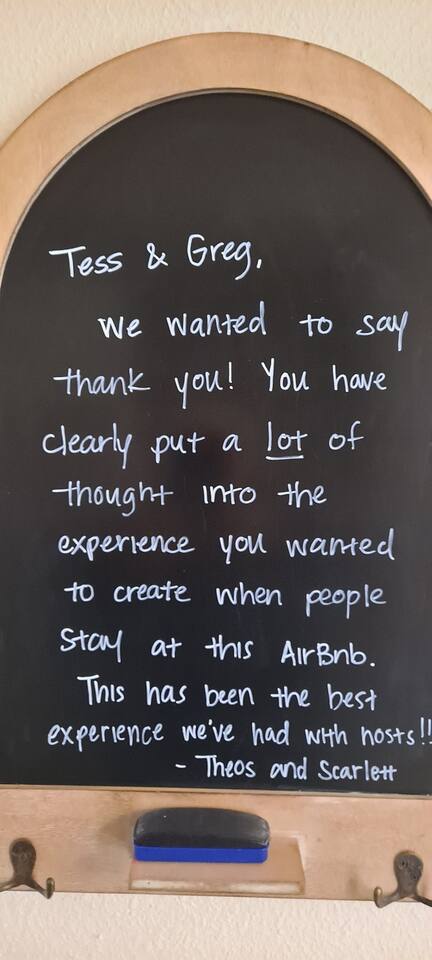 Tess & Greg,
We wanted to say
thank you! You have
clearly put a lot of
thought into the
experience you wanted
to create when people
stay at this AirBnb.
This has been the best
experience we've had with hosts!!
- Theos and Scarlett